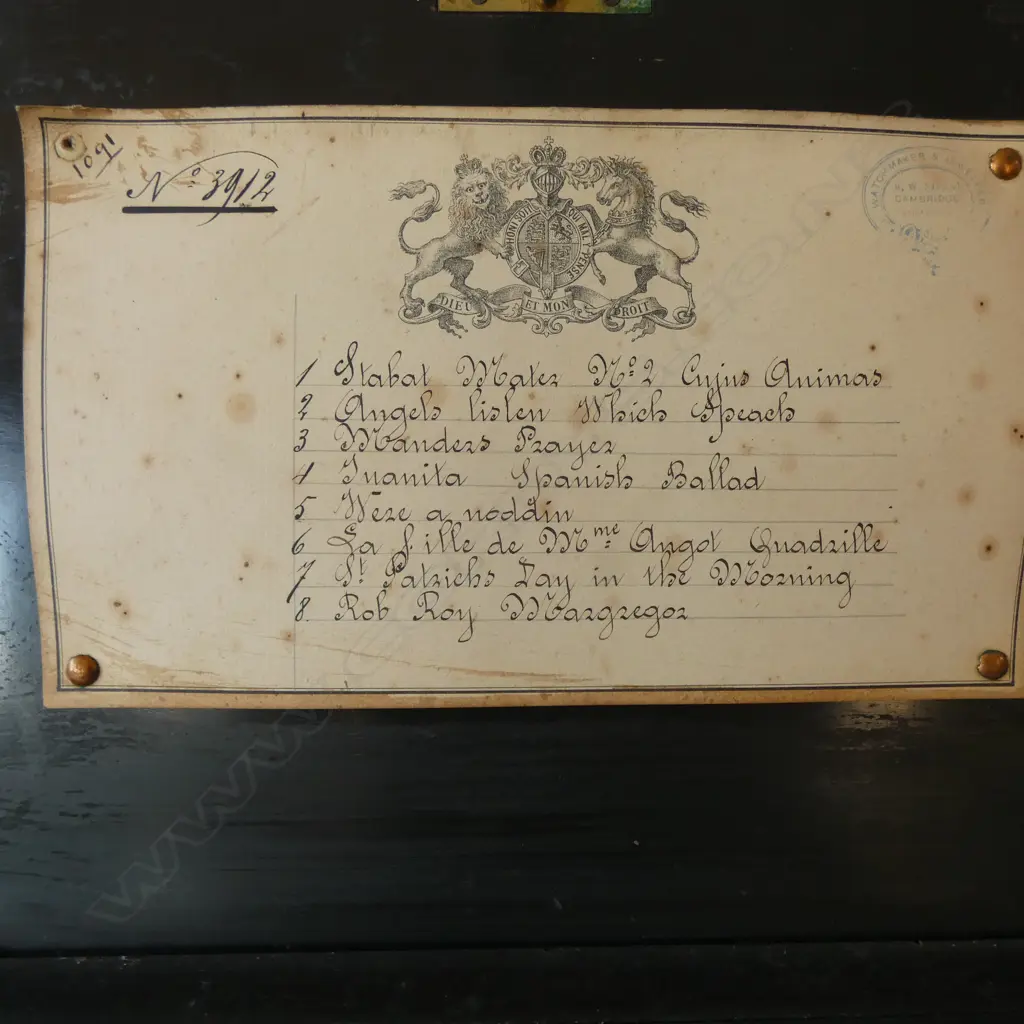 1091
Nº 3912
HONI SOIT QUI MAL Y PENSE
DIEU ET MON DROIT
WATCHMAKER &
CAMBRIDGE
1 Stabat Mater Nº 2 Cujus Animas
2 Angels listen Which Speach
3 Manders Prayer
4 Juanita Spanish Ballad
5 Were a noddin
6 La fille de Mme Angot Quadrille
7 St Patrichs Day in the Morning
8. Rob Roy Margregor
www.